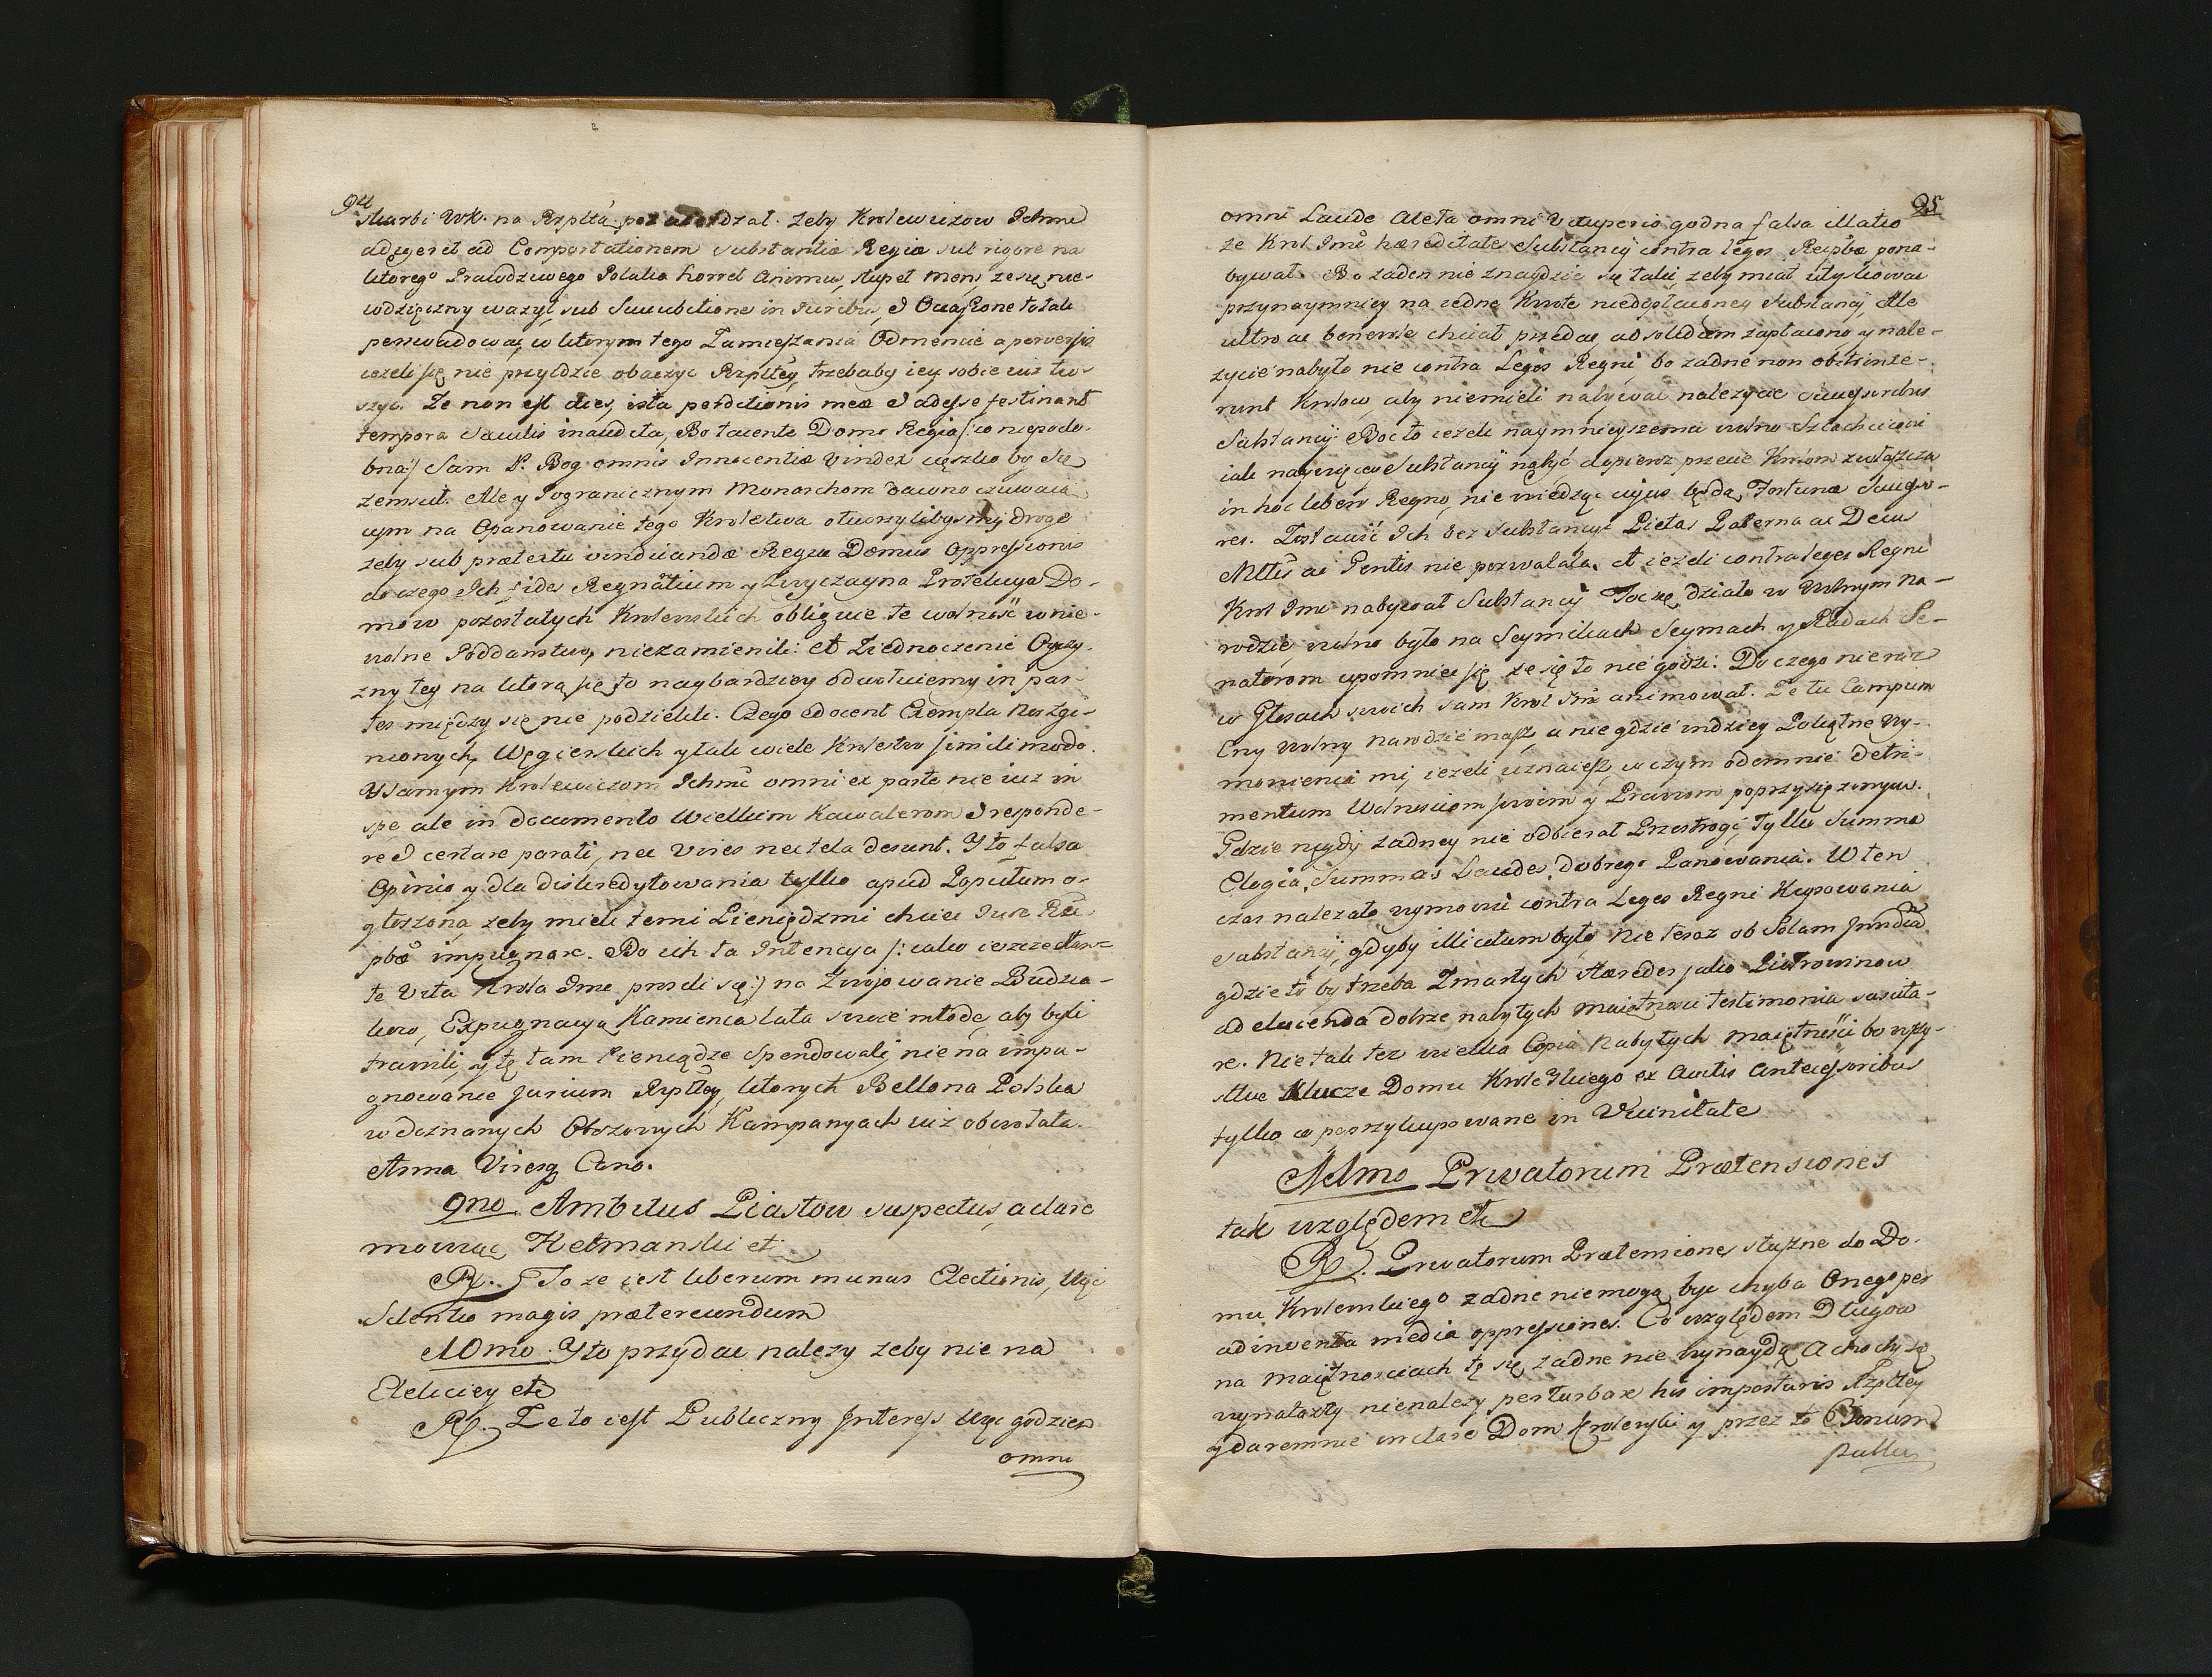 94
skarbi WK. na Rzpltą żeby Krolewizow Ichmć
adigeret ad Comportationem substantiæ Regiæ sub rigore na
ktorego Prawdziwego Polaka horret Animus, stupet mens, ze się nie-
wdzięczny ważył sub in Juribus, et totale
perswadować, w ktorym tego Zamieszania Odmencie a perversis
jeżeli się nie przyidzie obaczyc Rzpltey, trzebaby iey sobie iuż tu-
szyc. Ze non est dies, ista perditionis meæ et adesse festinant
tempora sæculis inaudita, Bo tacente Domo Regia /: co niepodo-
bna :/ Sam P. Bog omnis Innocentiæ Vindex cięszko by się
zemscił. Ale y Pogranicznym Monarchom dawno czuwaią
cym na Opanowanie tego Krolestwa otworzylibysmy droge
żeby sub prætextu vindicandæ Regiæ Domus Oppressionis
do czego Ich fides Regnãtium y Zwyczayna Protekcya Do-
mow pozostałych Krolewskich obliguie te wolność w nie-
wolne Poddanstwo, niezamienili: et Ziednoczenie Oyczy-
zny tey na ktorą się to naybardziey odwołuiemy in par-
tes między się nie podzielili. Czego edocent Exempla
nionych, Węgierskich y tak wiele Krolestw simili modo.
Y samym Krolewiczom Ichmć omni ex parte nie iuż in
spe ale in documento Wielkim Kawalerom et responde-
re et certare parati, nec vires nec tela desunt. Y to falsa
Opinio y dla diskredytowania tylko apud Populum o-
głoszona, zeby mieli temi Pieniędzmi chciec Jura Rei
pbæ impugnare. Bo ich ta Intencya /: iako ieszcze
te Vita Krola Jmc :/ na Zwojowanie Budzia-
kow, Expugnacyą Kamienca lata swoie młode, aby byli
trawili, y tę tam Pieniądze spendowali, nie na impu-
gnowanie Jurium Rzpltey, ktorych Bellona Polska
w doznanych Obozowych Kampanyach iuż obwołała.
Arma Viresq Cano.
9no. Ambitus Piastow suspectus, a clare
mowiąc Hetmanski etc
R. To ze iest liberum munus Electionis, więc
Silentio magis prætereundum
10mo. Y to przydac nalezy zeby nie na
Elekciey etc
R. Ze to iest Publiczny Interess więc godzien
omni
95
omni Laude Ale ta omni Vituperio godna falsa illatio
ze Krol Jmć hæreditates Substancij contra leges Reipbæ pona-
bywał. Bo zaden nie znaydzie się taki, zeby miał utyskowac
przynaymniey na iednę Kwote niedopłaconey Substancij, Ale
ultro ac benevole chciał przedac, ad solidum zapłacono y nale-
życie nabyto nie contra Leges Regni, bo zadne non obstrinxe-
runt Krolow, aby niemieli nabywac nalezycie successoribus
Substancij. Boć to iezeli naymnieyszemu wolno Szlachcicowi
iak naywięcey Substancij nabyć dopieroz przecie Krolom zwłaszcza
in hoc libero Regno, nie wiedząc cujus będą Fortunæ Successo-
res. Zostawić Ich bez substancyi Pietas Paterna ac Decus
Mttis ac Gentis nie pozwalała. At iezeli contra leges Regni
Krol Jmc nabywał Substancij To się działo w Wolnym Na-
rodzie, wolno było na Seymikach Seymach y Radach Se-
natorom upomniec się ze się to nie godzi. Do czego nie raz
w Głosach swoich sam Krol Jmć animował. Ze tu Campum
Cny Wolny Narodzie masz, a nie gdzie indziey Pokątne wy-
mowienia mi, iezeli uznaiesz w czym odemnie detri-
mentum Wolnosciom swoim y Prawom poprzysiężonym.
Gdzie nigdy żadney nie odbierał Przestrogi, Tylko Summa
Elogia, Summas Laudes, dobrego Panowania. W ten
czas nalezało wymowić contra Leges Regni Kupowania
substancij, gdyby illicitum było Nie teraz ob Solam Jnvidiã
gdzie to by trzeba Zmarłych Hæredes jako Piotrowinow
ad elucenda dobrze nabytych maiętnosci testimonia suscita-
re. Nie tak tez wielka Copia Nabytych maiętności bo wszy-
stkie Klucze Domu Krolewskiego ex Avitis Antecessoribus
tylko co poprzykupowane in Vicinitate
11mo Privatorum Prætensiones
tak względem etc
R. Privatorum Prætensiones słuszne do Do-
mu Krolewskiego zadne niemogą byc chyba Onego per
adinventa media oppressiones. Co względem Długow
na maiętnosciach tę się żadne nie wynaydą A chocby się
wynalazły nienalezy perturbare his importunis Rzpltey
y daremnie Dom Krolewski y przez to Bonum
publi